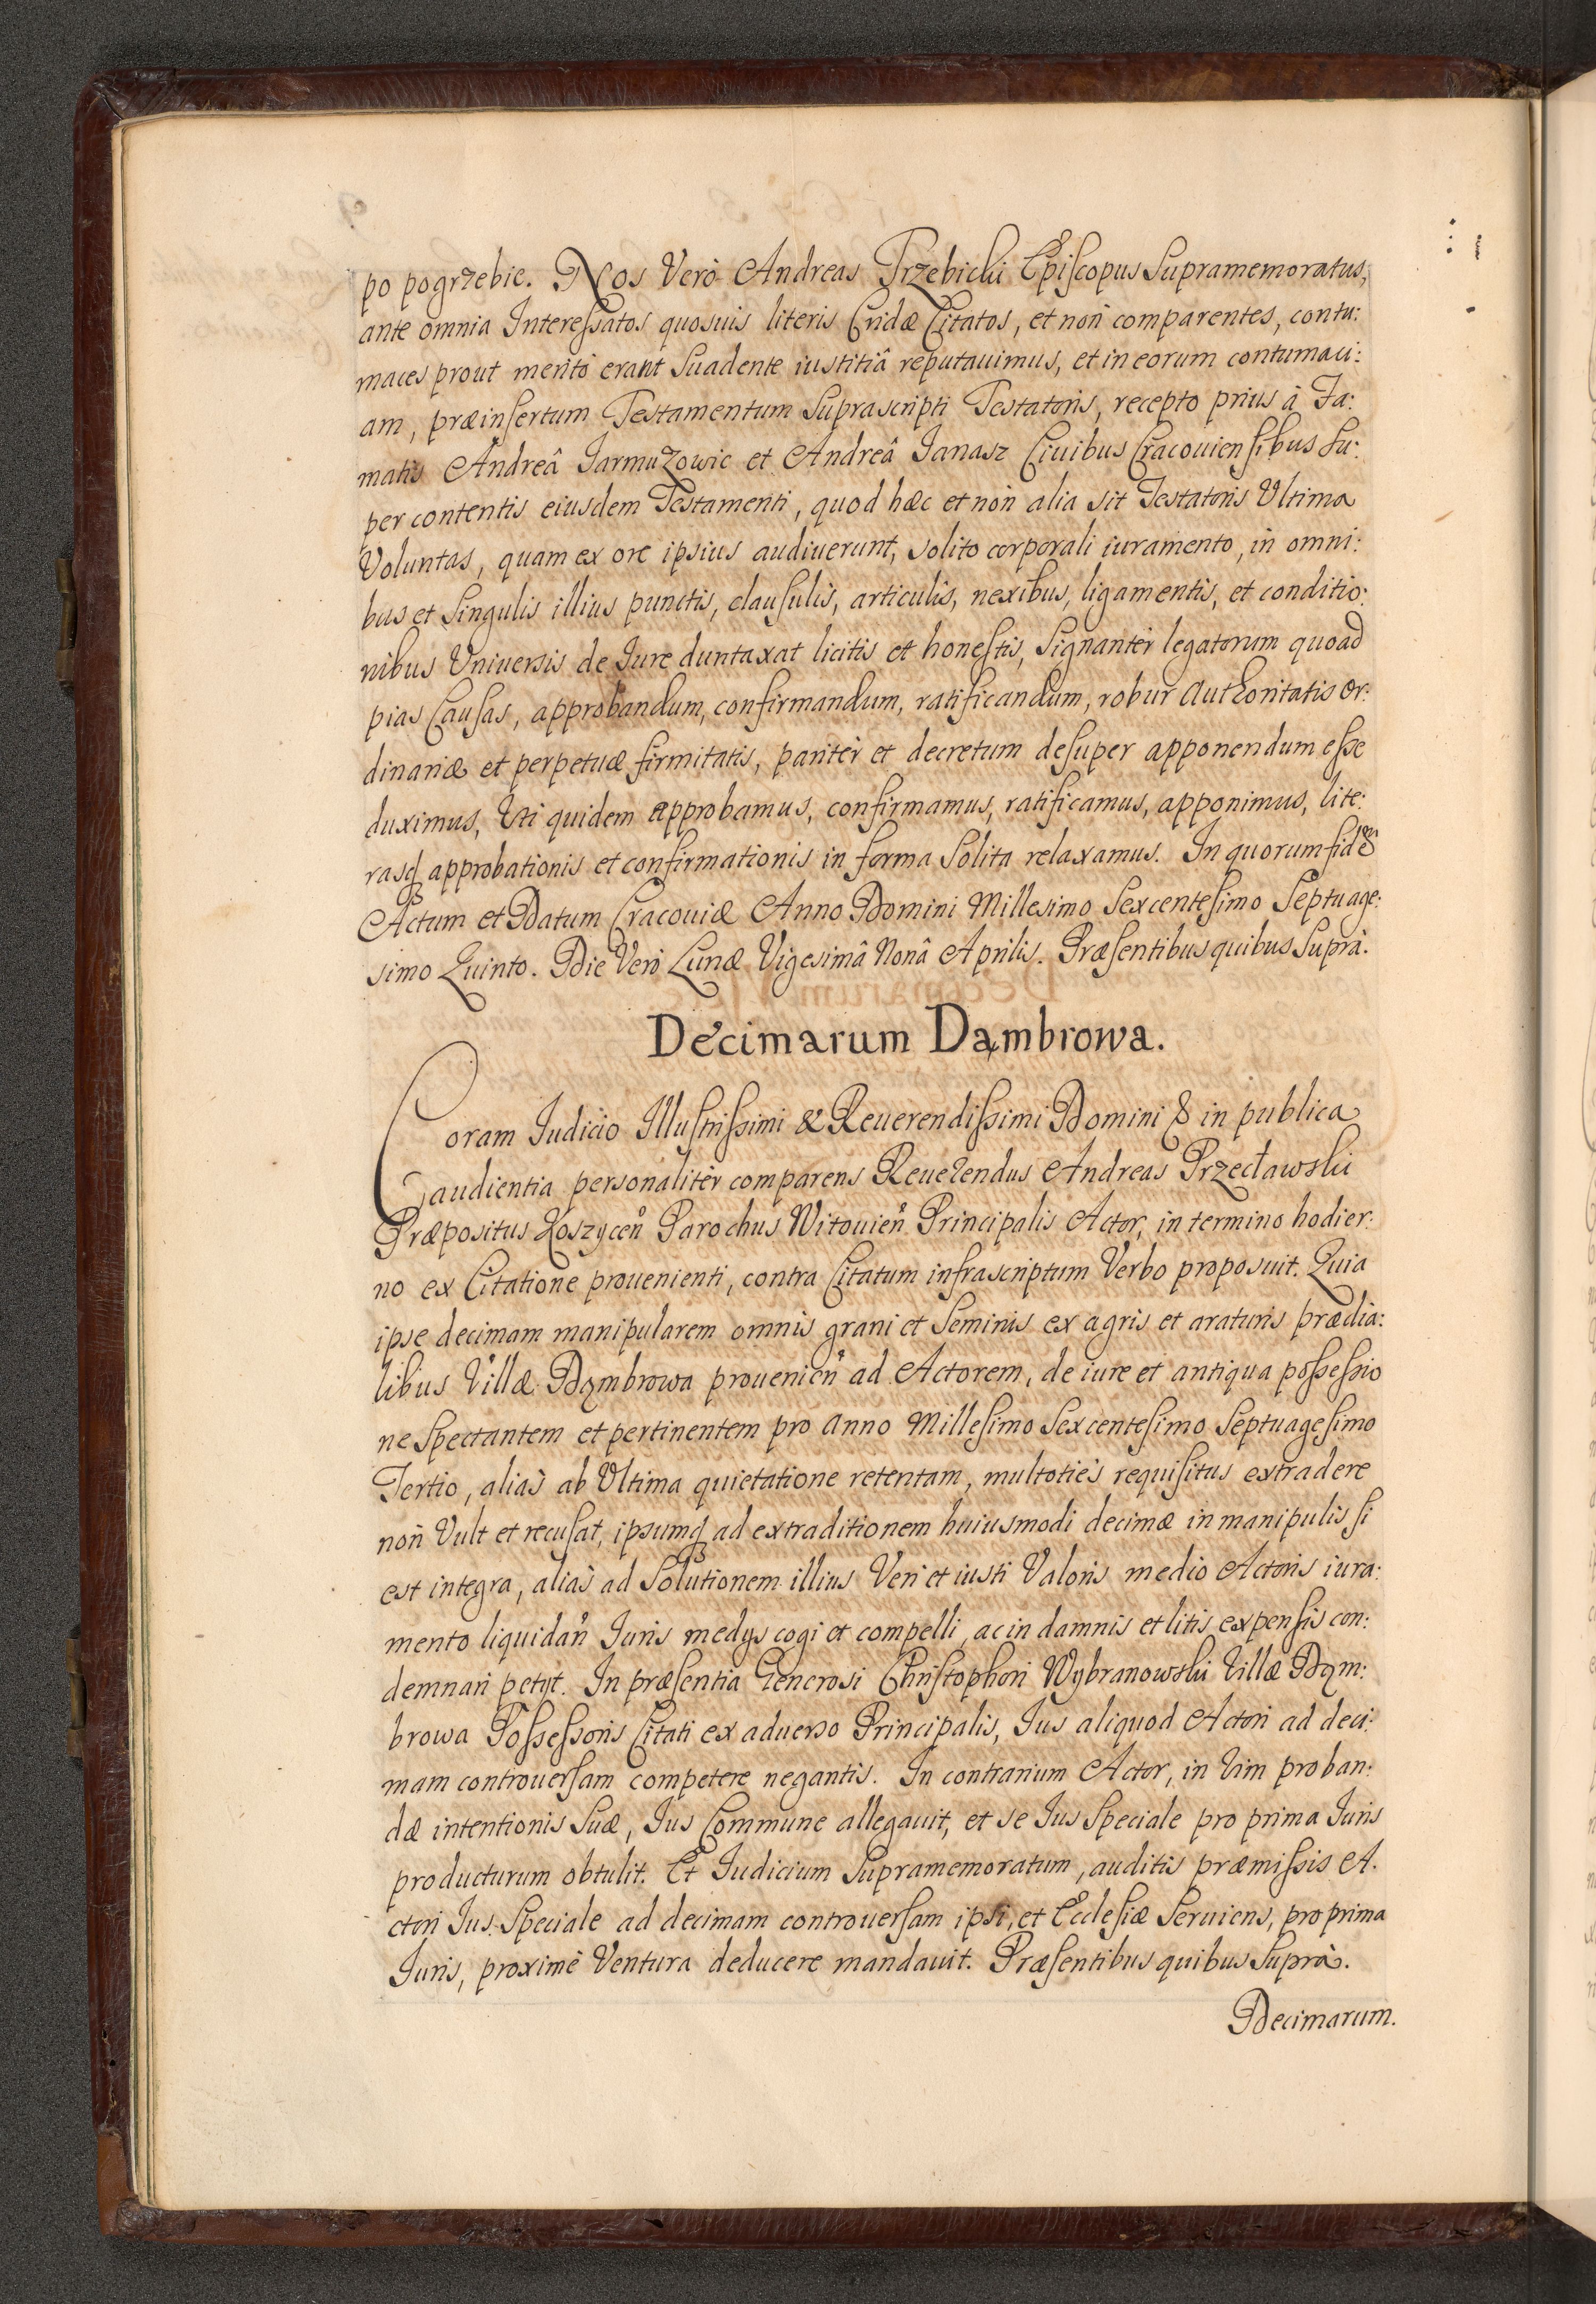 po pogrzebie. Nos Verò Andreas Trzebicki Episcopus Supramemoratus,
ante omnia Interessatos quosuis literis Cridæ Citatos, et non comparentes, contu:
maces prout meritò erant suadente iustitiâ reputauimus, et in eorum contumaci:
am, præinsertum Testamentum Suprascripti Testatoris, recepto prius à Fa:
matis Andreâ Jarmuzowic et Andreâ Janasz Ciuibus Cracouiensibus Su:
per contentis eiusdem Testamenti, quod hæc et non alia sit Testatoris Vltima
Voluntas, quam ex ore ipsius audiuerunt, solito corporali iuramento, in omni:
bus et Singulis illius punctis, clausulis, articulis, nexibus, ligamentis, et conditio:
nibus Vniuersis de Iure duntaxat licitis et honestis, Signantèr legatorum quoad
pias Causas, approbandum, confirmandum, ratificandum, robur Authoritatis Or:
dinariæ et perpetuæ firmitatis, paritèr et decretum desuper apponendum esse
duximus, Vti quidem approbamus, confirmamus, ratificamus, apponimus, lite:
rasq approbationis et confirmationis in forma Solita relaxamus. In quorum fidem
Actum et Datum Cracouiæ Anno Domini Millesimo Sexcentesimo Septuage:
simo Quinto. Die Verò Lunæ Vigesimâ Nonâ Aprilis. Præsentibus quibus Suprà.
Decimarum Dąmbrowa.
Coram Iudicio Illustrissimi & Reuerendissimi Domini & in publica
audientia personalitèr comparens Reuerendus Andreas Przecławski
Præpositus Koszycen Parochus Witouien Principalis Actor, in termino hodier:
no ex Citatione prouenienti, contra Citatum infrascriptum Verbo proposuit. Quia
ipse decimam manipularem omnis grani et Seminis ex agris et araturis prædia:
libus Villæ Dąmbrowa prouenien ad Actorem, de iure et antiqua possessio
ne Spectantem et pertinentem pro Anno Millesimo Sexcentesimo Septuagesimo
Tertio, aliàs ab Vltima quietatione retentam, multotiès requisitus extradere
non Vult et recusat, ipsumq ad extraditionem huiusmodi decimæ in manipulis si
est integra, aliàs ad Solutionem illius Veri et iusti Valoris medio Actoris iura:
mento liquidan Iuris medys cogi et compelli, ac in damnis et litis expensis con:
demnari petyt. In præsentia Generosi Christophori Wybranowski Villæ Dąm:
browa Possessoris Citati ex aduerso Principalis, Ius aliquod Actori ad deci:
mam controuersam competere negantis. In contrarium Actor, in Vim proban:
dæ intentionis Suæ, Ius Commune allegauit, et se Ius Speciale pro prima Iuris
producturum obtulit. Et Iudicium Supramemoratum, auditis præmissis A.
ctori Ius Speciale ad decimam controuersam ipsi, et Ecclesiæ Seruiens, pro prima
Iuris, proximè Ventura deducere mandauit. Præsentibus quibus Suprà.
Decimarum.